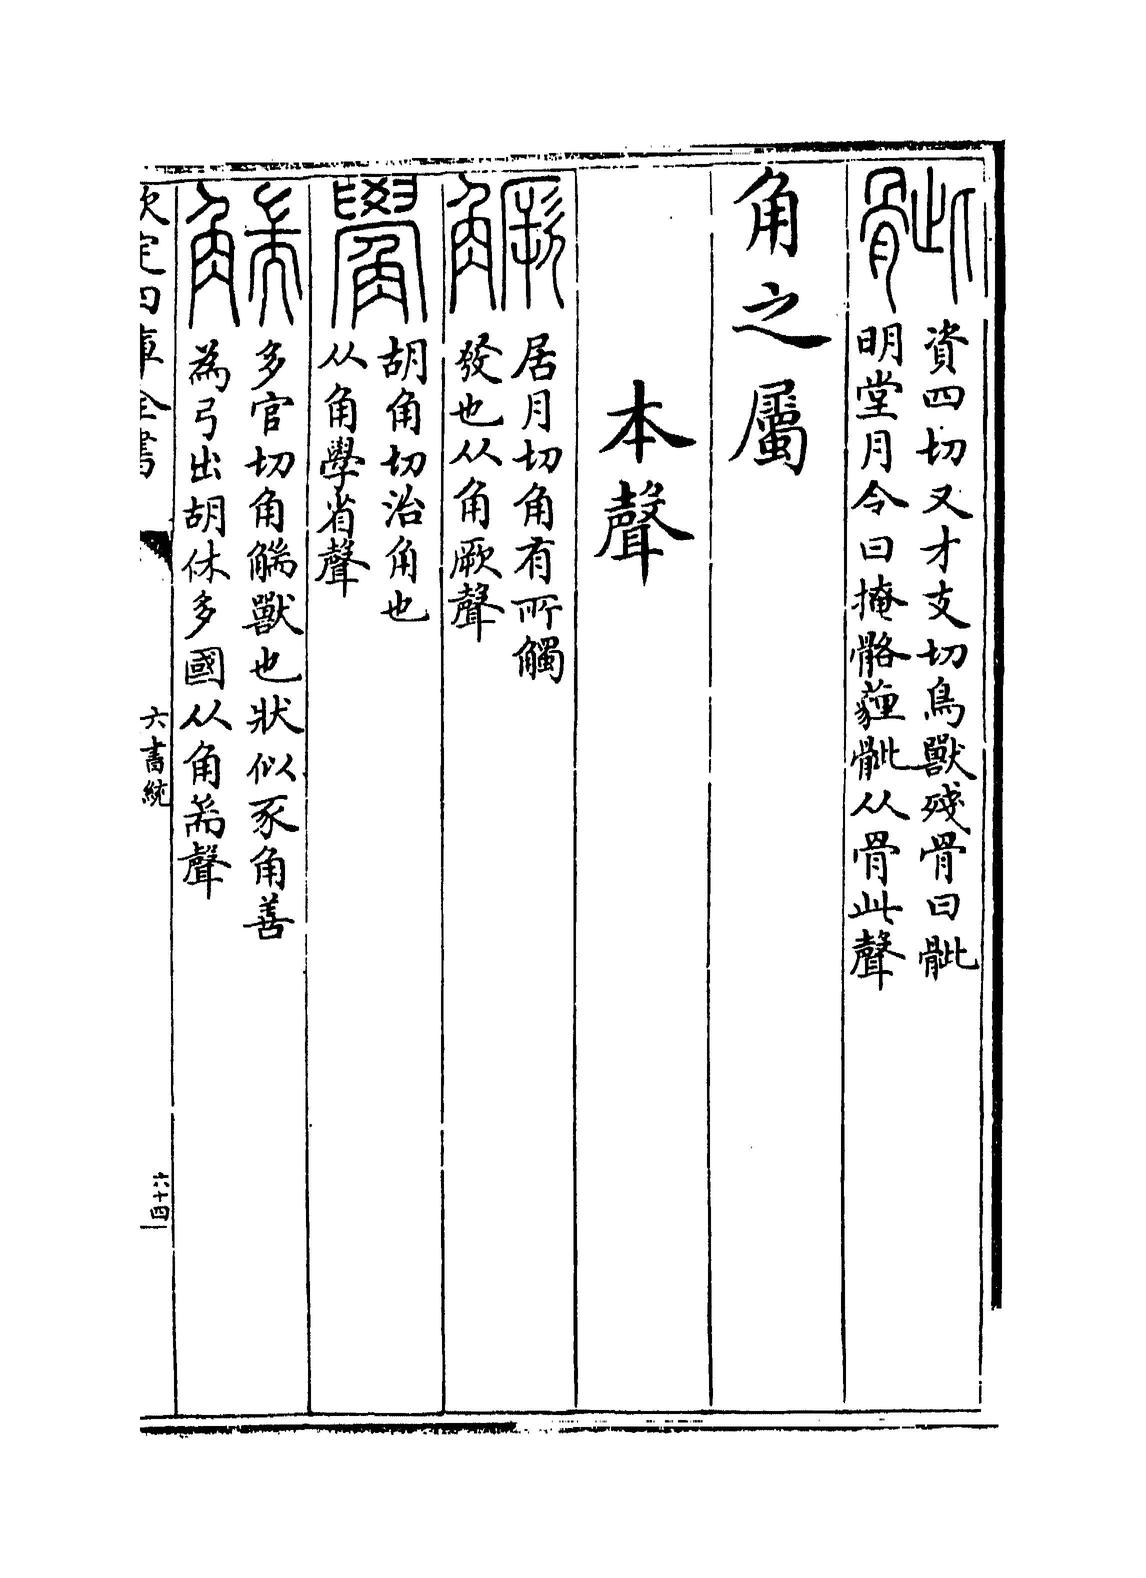 骴
資四切又才支切鳥獸殘骨曰骴
明堂月令曰掩骼薶骴从骨此聲
角之屬
本聲
𧤼
居月切角有所觸
發也从角厥聲
觷
胡角切治角也
从角學省聲
𧤗
多官切角𧤗獸也狀似豕角善
為弓出胡休多國从角耑聲
欽定四庫全書
六書統
六十四